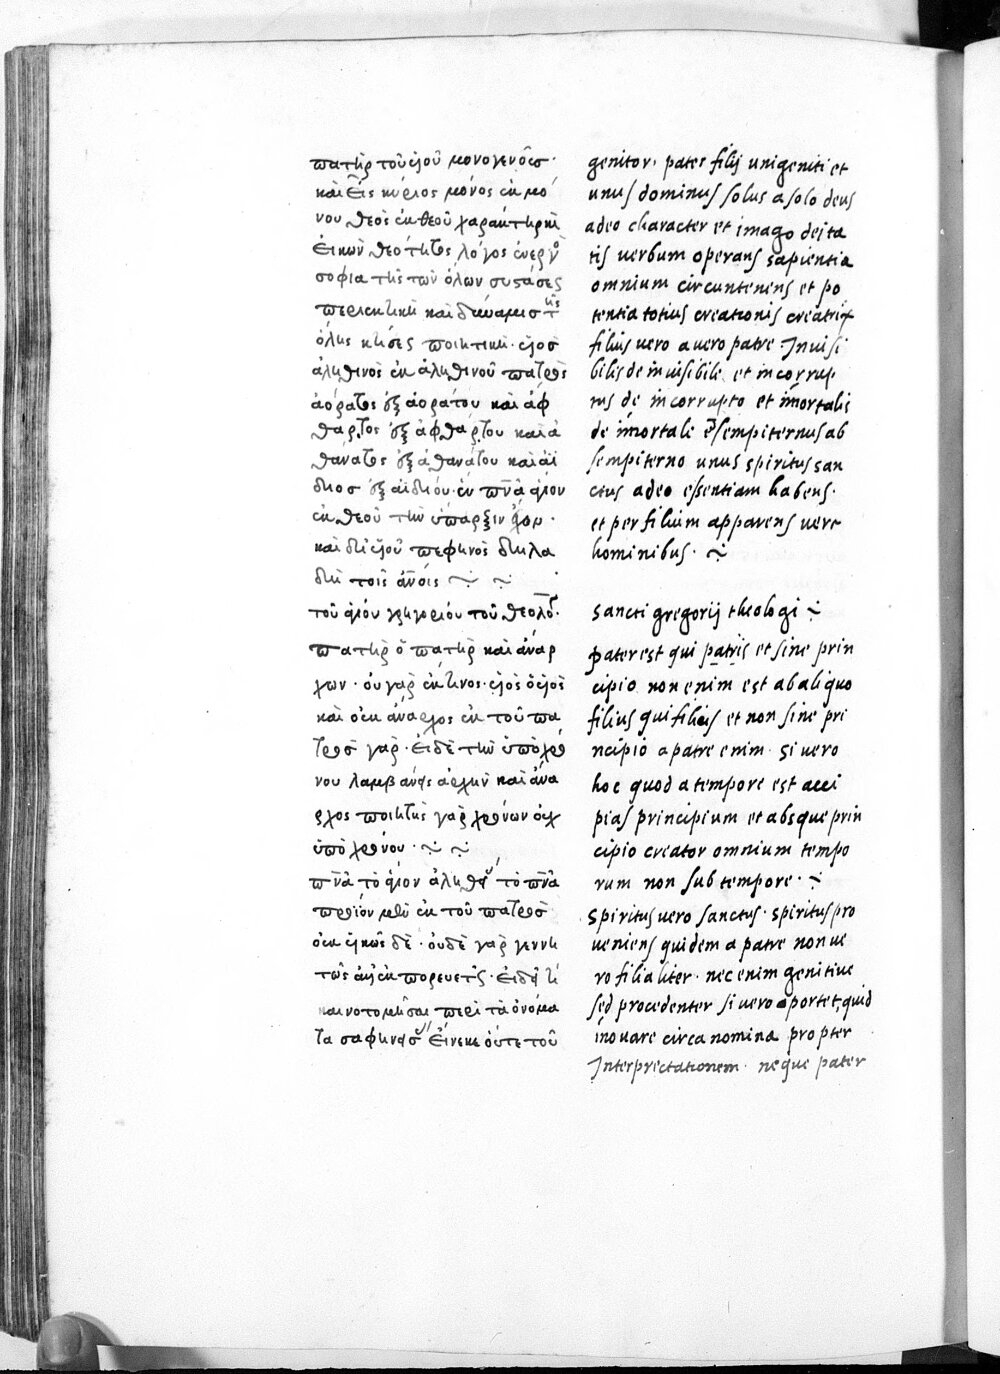 πατὴρ τοῦ υἱοῦ μονογενοῦς·
καὶ εἷς κύριος μόνος ἐκ μό
νου θεὸς ἐκ θεοῦ χαρακτὴρ κὶ
εἰκὼν θεότητος λόγος ἐνεργὸ
σοφία τῆς τῶν ὅλων συστάσεως
περιεκτικὴ καὶ δύναμις τῆς
ὅλης κτήσεως ποιητικὴ· υἱὸς
ἀληθινὸς ἐκ ἀληθινοῦ πατρὸς
ἀόρατος ἐξ ἀοράτου καὶ ἀφ
θαρτος ἐξ ἀφθάρτου καὶ ἀ
θανατος ἐξ ἀθανάτου καὶ ἀΐ
διος ἐξ ἀϊδίου· ἓν πν̅α ἅγιον
ἐκ θεοῦ τὴν ὕπαρξιν ἔχον·
καὶ δι' υἱοῦ πεφηνὸς δηλα
δὴ τοῖς ἀν̅οις ~ ~
τοῦ ἁγίου γρηγορίου τοῦ θεολό·
πατὴρ ὁ πατὴρ καὶ ἄναρ
χων· οὐ γὰρ ἔκ τινος· υἱὸς ὁ υἱὸς
καὶ οὐκ ἄναρχος ἐκ τοῦ πα
τρὸς γάρ· εἰ δὲ τὴν ὑπὸ χρό
νου λαμβάνεις ἀρχὴν καὶ ἄνα
ρχος ποιητὴς γὰρ χρόνων οὐχ
ὑπὸ χρόνου· ~ ~
πν̅α τὸ ἅγιον ἀληθῶς τὸ πν̅α
προϊὸν μὲν ἐκ τοῦ πατρὸς
οὐκ υἱκῶς δὲ· οὐδὲ γὰρ γεννη
τῶς ἀλλ' ἐκπορευετῶς· εἰ δεῖ τι
καινοτομῆσαι περὶ τὰ ὀνόμα
τα σαφηνείας εἵνεκε οὔτε τοῦ
genitor· pater filij unigeniti et
unus dominus solus a solo deus
adeo character et imago deita
tis verbum operans sapientia
omnium circuntenens et po
tentia totius creationis creatrix
filius vero a vero patre· Invisi
bilis de invisibile et incorrup
tus de incorrupto et imortalis
de imortale et sempiternus ab
sempiterno unus spiritus san
ctus adeo essentiam habens·
et per filium apparens vere
hominibus· ~
Sancti gregorij theologi ~
pater est qui patris et sine prin
cipio non enim est ab aliquo
filius qui filius et non sine pri
ncipio a patre enim· Si vero
hoc quod a tempore est acci
pias principium et absque prin
cipio creator omnium tempo
rum non sub tempore· ~
Spiritus vero sanctus· spiritus pro
veniens quidem a patre non ve
ro filialiter· nec enim genitive
sed procedenter si vero oportet, quid
inovare circa nomina propter
Interprectationem· neque pater